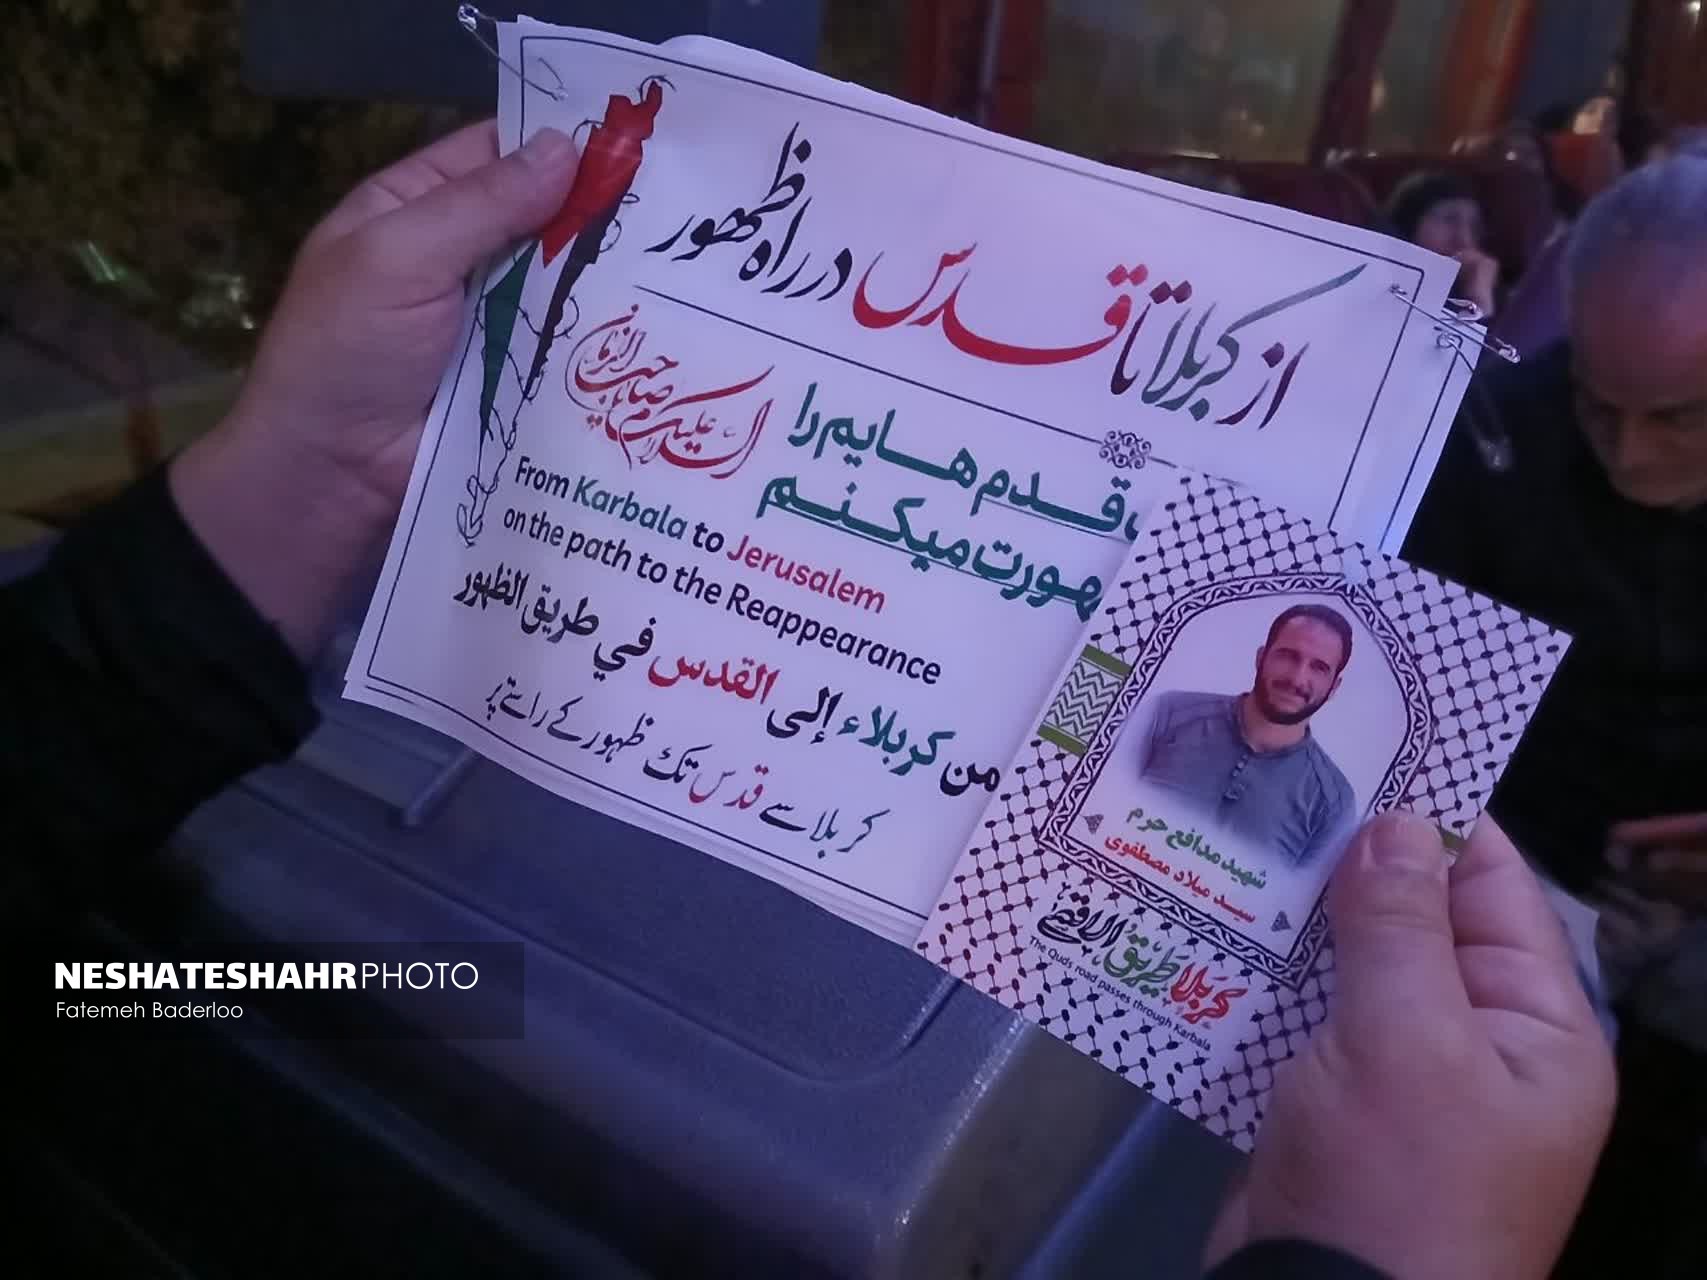 از کربلا تا قدس در راه ظهور
السلام علیکم یا صاحب الزمان
قدم هایم را
میکنم
From Karbala to Jerusalem
on the path to the Reappearance
من كربلاء إلى القدس في طريق الظهور
کربلا سے قدس تک ظہور کے راستے پر
شهید مدافع حرم
سید میلاد مصطفوی
کربلا طریق الاقصی
The Quds road passes through Karbala
NESHATESHAHRPHOTO
Fatemeh Baderloo